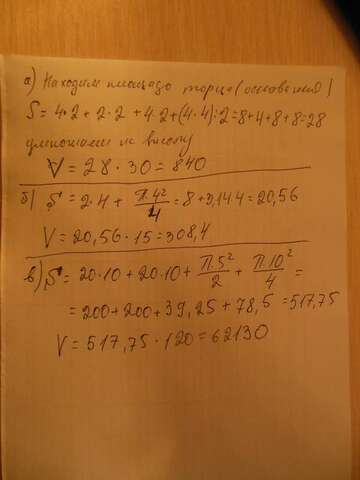 а) Находим площадь торца (основания)
S = 4·2 + 2·2 + 4·2 + (4·4):2 = 8+4+8+8 = 28
умножаем на высоту
V = 28 · 30 = 840
б) S = 2·4 + П·4²/4 = 8 + 3,14·4 = 20,56
V = 20,56 · 15 = 308,4
в) S = 20·10 + 20·10 + П·5²/2 + П·10²/4 =
= 200 + 200 + 39,25 + 78,5 = 517,75
V = 517,75 · 120 = 62130